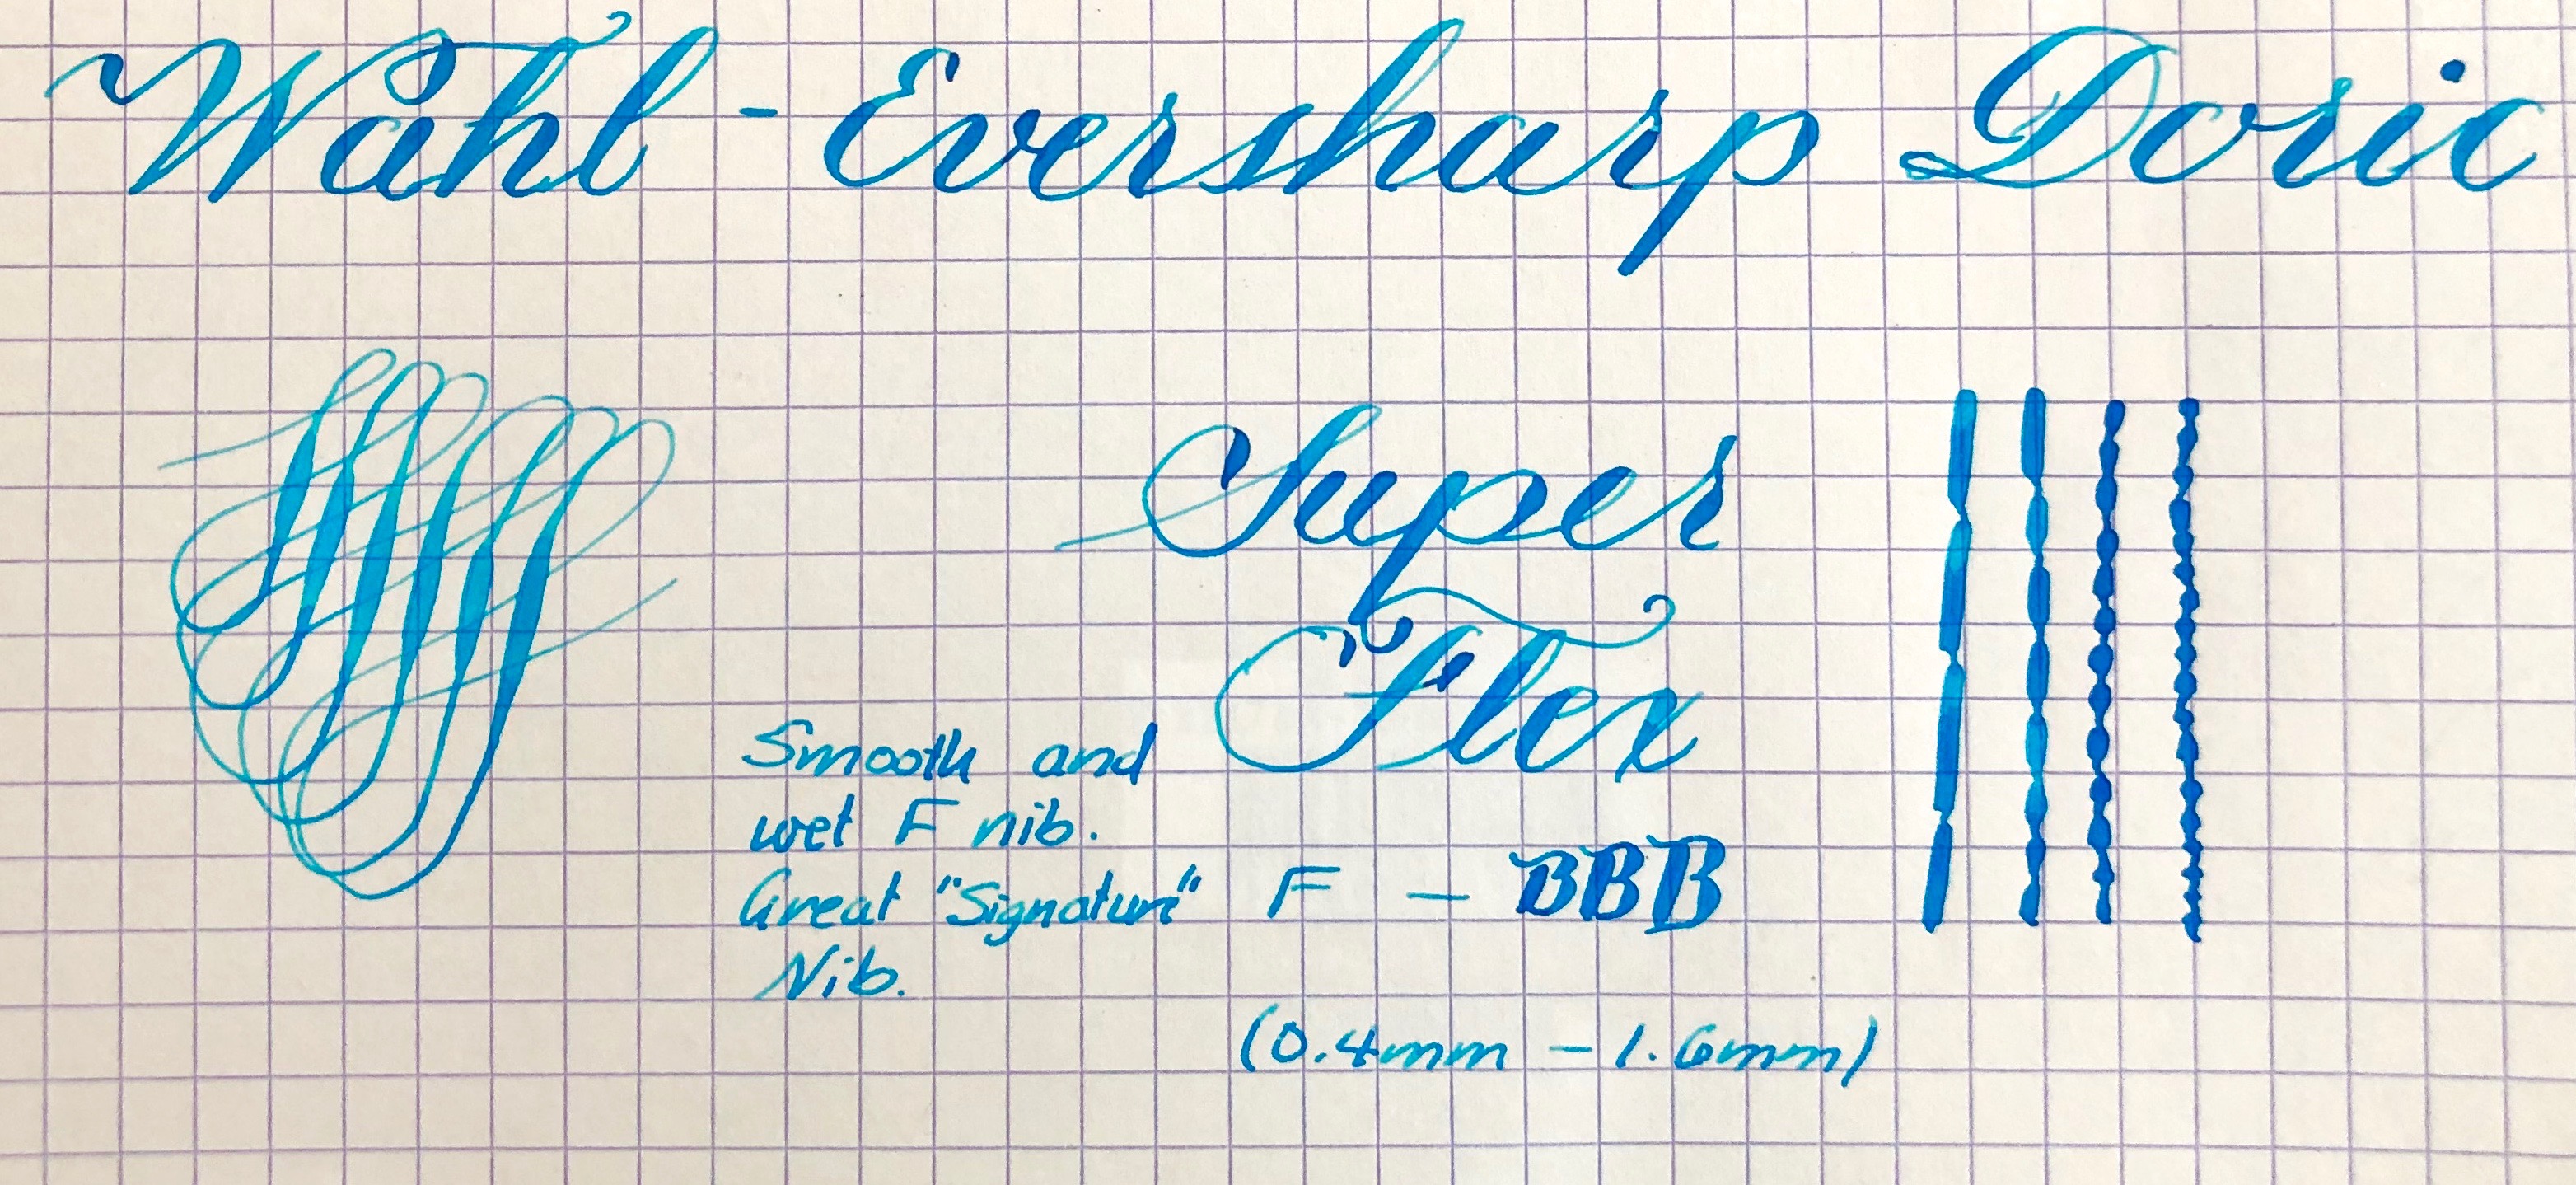 Wahl - Eversharp Doric
Super
Flex
Smooth and
wet F nib.
Great "Signature"
Nib.
F - BBB
(0.4mm - 1.6mm)